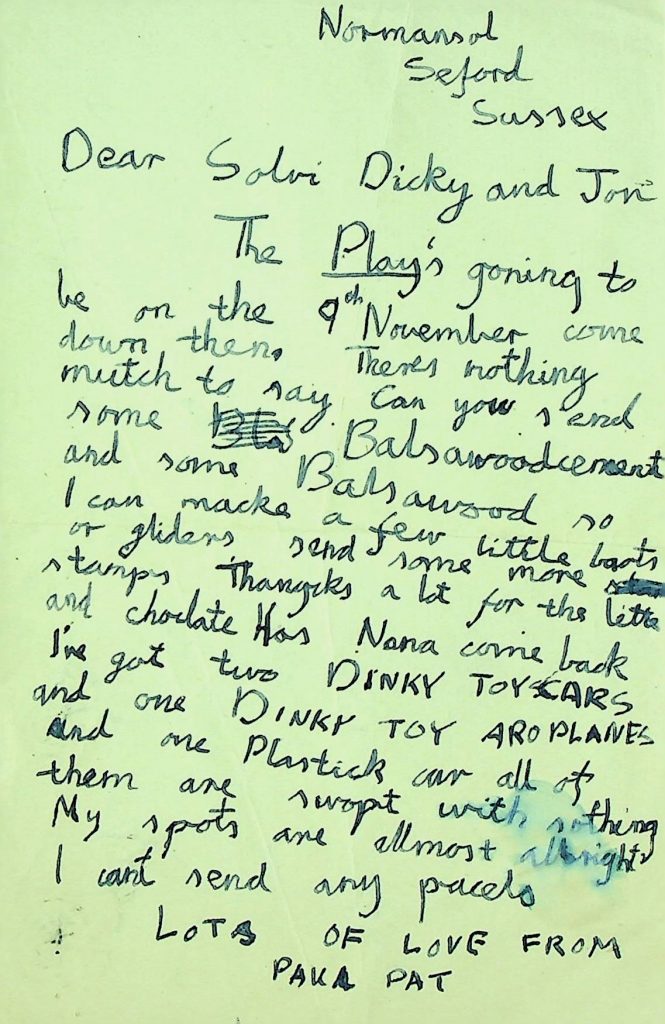 Normansol
Seford
Sussex
Dear Solvi Dicky and Jon
The Play's goning to
be on the 9th November come
down then. Theres nothing
mutch to say Can you send
some Balsawoodcement
and some Balsawood so
I can macke a few little boats
or gliders send some more
stamps Thangks a lot for the lette
and choclate Has Nana come back
I've got two DINKY TOYS CARS
and one DINKY TOY AROPLANES
and one Plastick car all of
them are swopt with sothing
My spots are allmost allright
I cant send any pacels
LOTS OF LOVE FROM
PAKA PAT